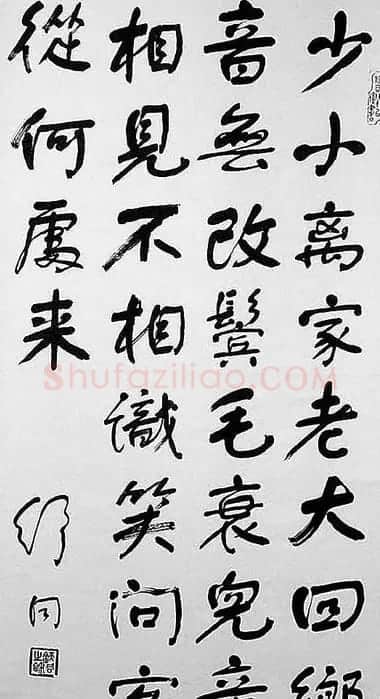 少小离家老大回鄉
音無改鬓毛衰兒童
相見不相識笑问客
從何處来
舒同
Shufaziliao.COM